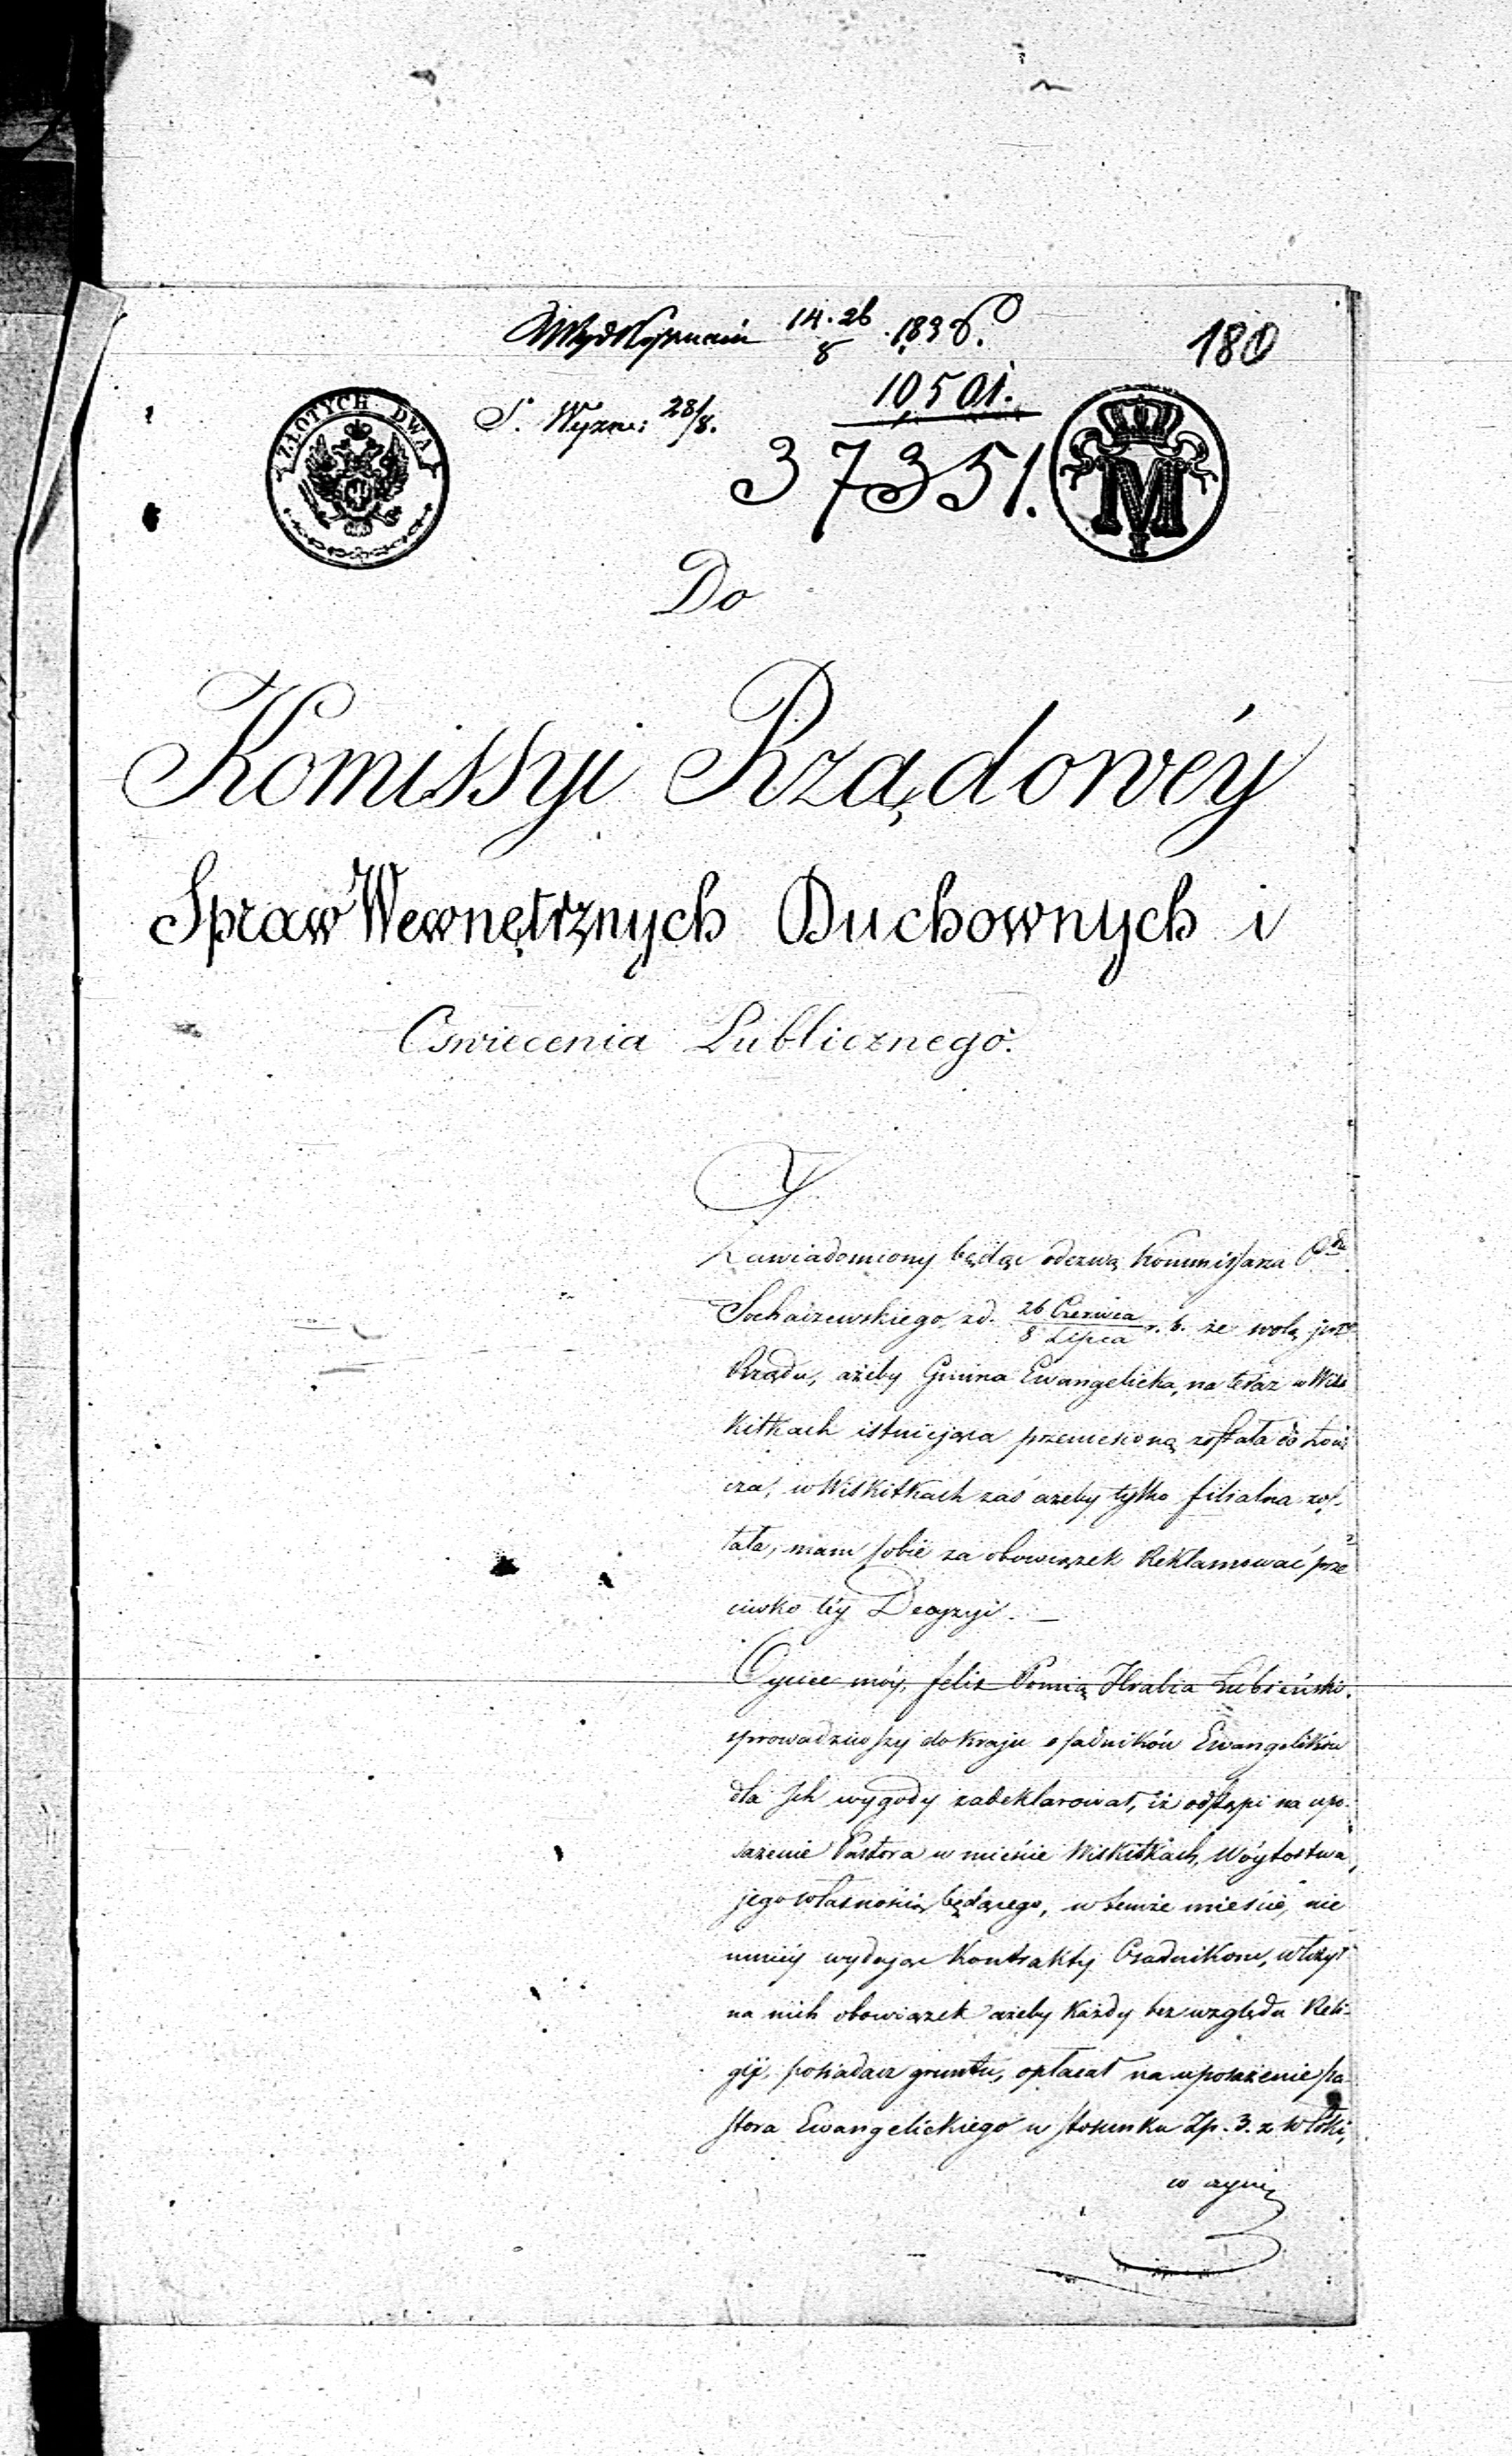 14.26/8 1836.
180
10501.
ZŁOTYCH DWA
S. Wyzn: 28/8.
37351.
M
Do
Komissyi Rządowéy
Spraw Wewnętrznych Duchownych i
Oswiecenia Publicznego.
Zawiadomiony będąc odezwą Kommissarza
Sochaczewskiego zd. 26 Czerwca/8 Lipca r. b. że wolą jest
Rządu, ażeby Gmina Ewangelicka, na teraz w Wis
kitkach istniejąca przeniesioną została do Łowi
cza, w Wiskitkach zaś ażeby tylko filialna zos
tała, mam sobie za obowiązek Reklamować prze
ciwko téy Decyzyi. —
Oyciec móy, Felix Pomią Hrabia Łubieński,
sprowadziwszy do kraju osadników Ewangelików
dla Ich wygody zadeklarował, iż odstąpi na upo-
sażenie Pastora w mieście Wiskitkach, Wóytostwa,
jego własnością będącego, w temże mieście, nie
mniéy wydając Kontrakty Osadnikom, włożył
na nich obowiązek ażeby Każdy bez względu Reli-
gij, posiadacz gruntu, opłacał na uposażenie Pa
stora Ewangelickiego w stosunku Zp. 3. z Włoki,
w czyn